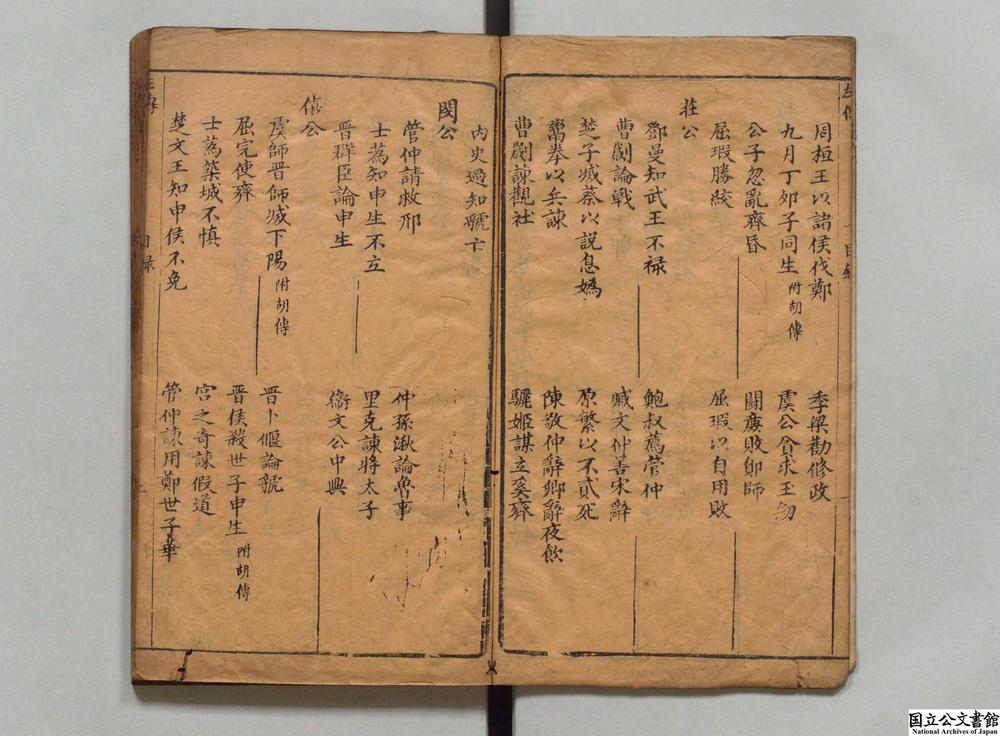 左傳
目錄
周桓王以諸侯伐鄭
季梁勸修政
九月丁卯子同生 附胡傳
虞公貪求玉
公子忽亂齊昏
鬭廉敗鄖師
屈瑕勝絞
屈瑕以自用敗
莊公
鄧曼知武王不禄
鮑叔薦管仲
曹劌論戰
臧文仲善宋辭
楚子滅蔡以說息媯
原繁以不貳死
鬻拳以兵諫
陳敬仲辭卿辭夜飲
曹劌諫觀社
驪姬謀立奚齊
內史過知虢亡
閔公
管仲請救邢
仲孫湫論魯事
士蒍知申生不立
里克諫將太子
晉群臣論申生
衞文公中興
僖公
虞師晉師滅下陽 附胡傳
晉卜偃論虢
屈完使齊
晉侯殺世子申生 附胡傳
士蒍築城不慎
宮之奇諫假道
楚文王知申侯不免
管仲諫用鄭世子華
左傳
目録
国立公文書館
National Archives of Japan